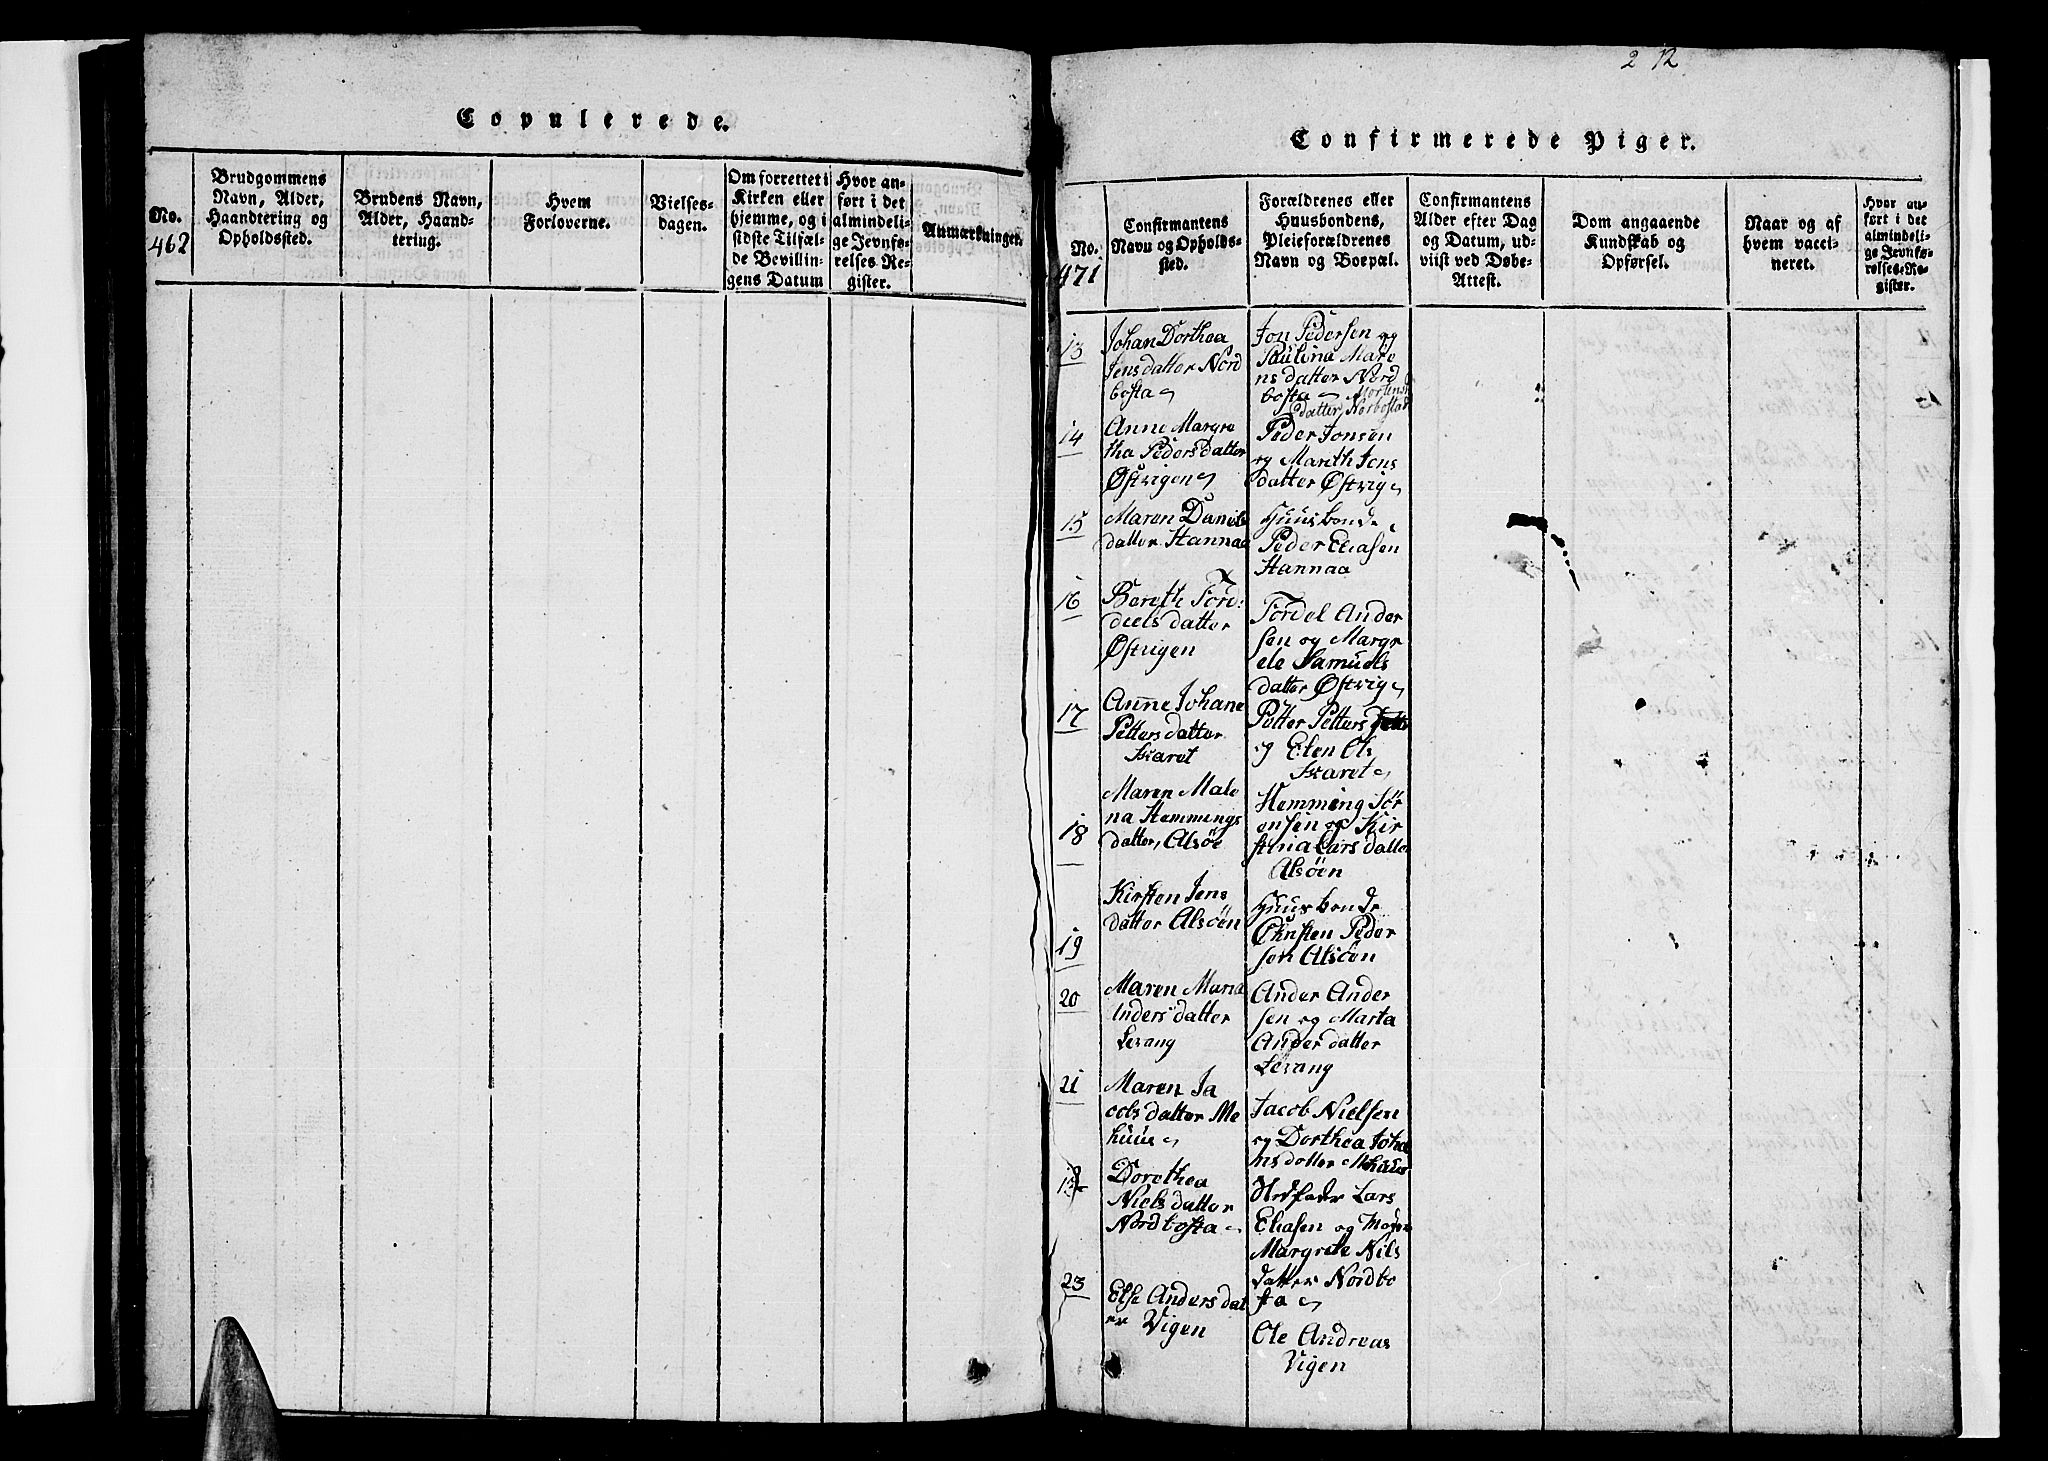 Copulerede.
No.
462
Brudgommens
Navn, Alder,
Haandtering og
Opholdssted.
Brudens Navn,
Alder, Haand-
tering.
Hvem
Forloverne.
Vielses-
dagen.
Om forrettet i
Kirken eller
hjemme, og i
sidste Tilfæl-
de Bevillin-
gens Datum
Hvor an-
ført i det
almindeli-
ge Jevnfø-
relses-Re-
gister.
Anmærkninger.
212
Confirmerede Piger.
No.
471
Confirmantens
Navn og Opholds-
sted.
Forældrenes eller
Huusbondens,
Pleieforældrenes
Navn og Boepæl.
Confirmantens
Alder efter Dag
og Datum, ud-
viist ved Døbe-
Attest.
Dom angaaende
Kundskab og
Opførsel.
Naar og af
hvem vacci-
neret.
Hvor an-
ført i det
almindeli-
ge Jevnfø-
relses-Re-
gister.
13
Johan Dorthea
Jensdatter Nord
bosta
Jon Pedersen og
Paulina Mare
nsdatter Nord
bosta Mortens
datter Norbosta
14
Anne Margre
tha Pedersdatter
Østvigen
Peder Jonsen
og Marith Jens
datter Østvig
15
Maren Daniels
datter Hannaa
Huusbonde
Peder Eliasen
Hannaa
16
Bereth Tord
deelsdatter
Østvigen
Tordel Ander
sen og Margr
ete Samuels
datter Østvig
17
Anne Johane
Pettersdatter
Skaret
Petter Petters
og Elen Ols
Skaret
18
Maren Male
na Hemmings
datter, Alsøe
Hemming Sör
ensen og Kir
stina Larsdatter
Alsøen
19
Kirsten Jens
datter Alsøen
Huusbonde
Christen Peder
sen Alsøen
20
Maren Maria
Andersdatter
Levang
Ander Ander
sen og Marta
Anderdatter
Levang
21
Maren Ja
cobsdatter Me
huus
Jacob Nielsen
og Dorthea Joha
nsdatter Mehuus
Dorethea
Nielsdatter
Nordbosta
Stedfader Lars
Eliasen og Moder
Margrete Nils
datter Nordbo
sta
23
Else Andersdat
er Vigen
Ole Andreas
Vigen